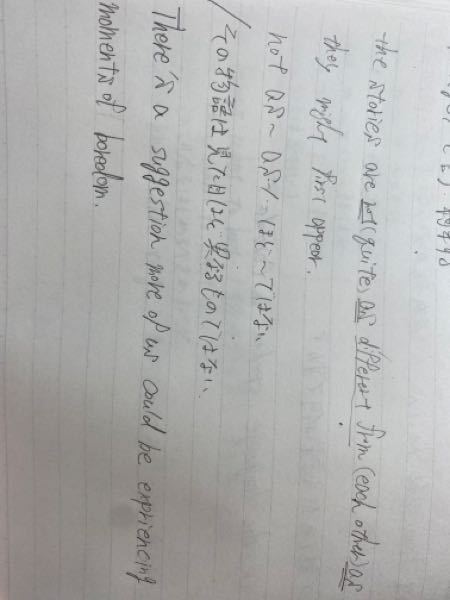 the stories are not (quite) as different from (each other) as
they might first appear.
not as ~ as ... ...ほど~ではない
/その物語は見た目ほど異なるものではない.
There's a suggestion more of us could be expriencing
moments of boredom.